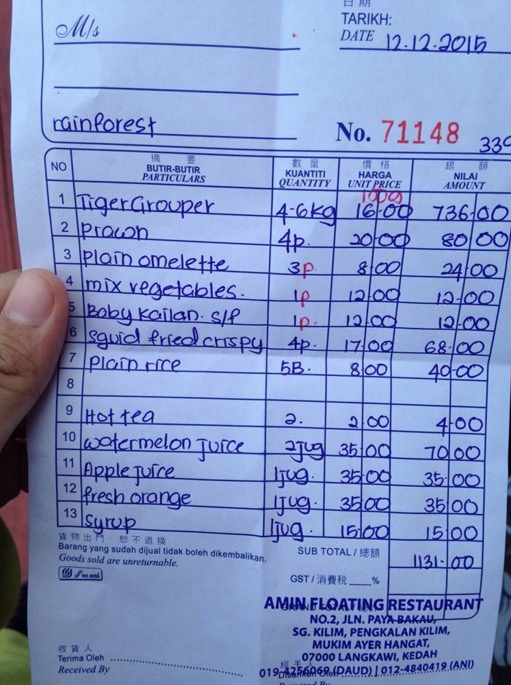 日期
M/s
TARIKH:
DATE 12.12.2015
rainforest
No. 71148
NO 摘要 BUTIR-BUTIR PARTICULARS 數量 KUANTITI QUANTITY 價格 HARGA UNIT PRICE 銀額 NILAI AMOUNT
100g
1 Tiger Grouper 4.6kg 16.00 736.00
2 Prawn 4p. 20.00 80 00
3 Plain omelette 3p. 8.00 24.00
4 mix vegetables. 1p 12.00 12.00
5 Baby kailan. s/p 1p. 12.00 12.00
6 squid fried crispy 4p. 17.00 68.00
7 Plain rice 5B. 8.00 40.00
8
9 Hot tea 2. 2.00 4.00
10 watermelon juice 2jug 35.00 70.00
11 Apple juice 1jug. 35.00 35.00
12 fresh orange 1jug. 35.00 35.00
13 Syrup 1jug. 15.00 15.00
貨物出門 恕不退換
Barang yang sudah dijual tidak boleh dikembalikan.
Goods sold are unreturnable.
SUB TOTAL / 總額 1131.00
GST / 消費稅 ____%
AMIN FLOATING RESTAURANT
NO.2, JLN. PAYA BAKAU,
SG. KILIM, PENGKALAN KILIM,
MUKIM AYER HANGAT,
07000 LANGKAWI, KEDAH
019-4256069 (DAUD) | 012-4840419 (ANI)
收貨人
Terima Oleh
Received By